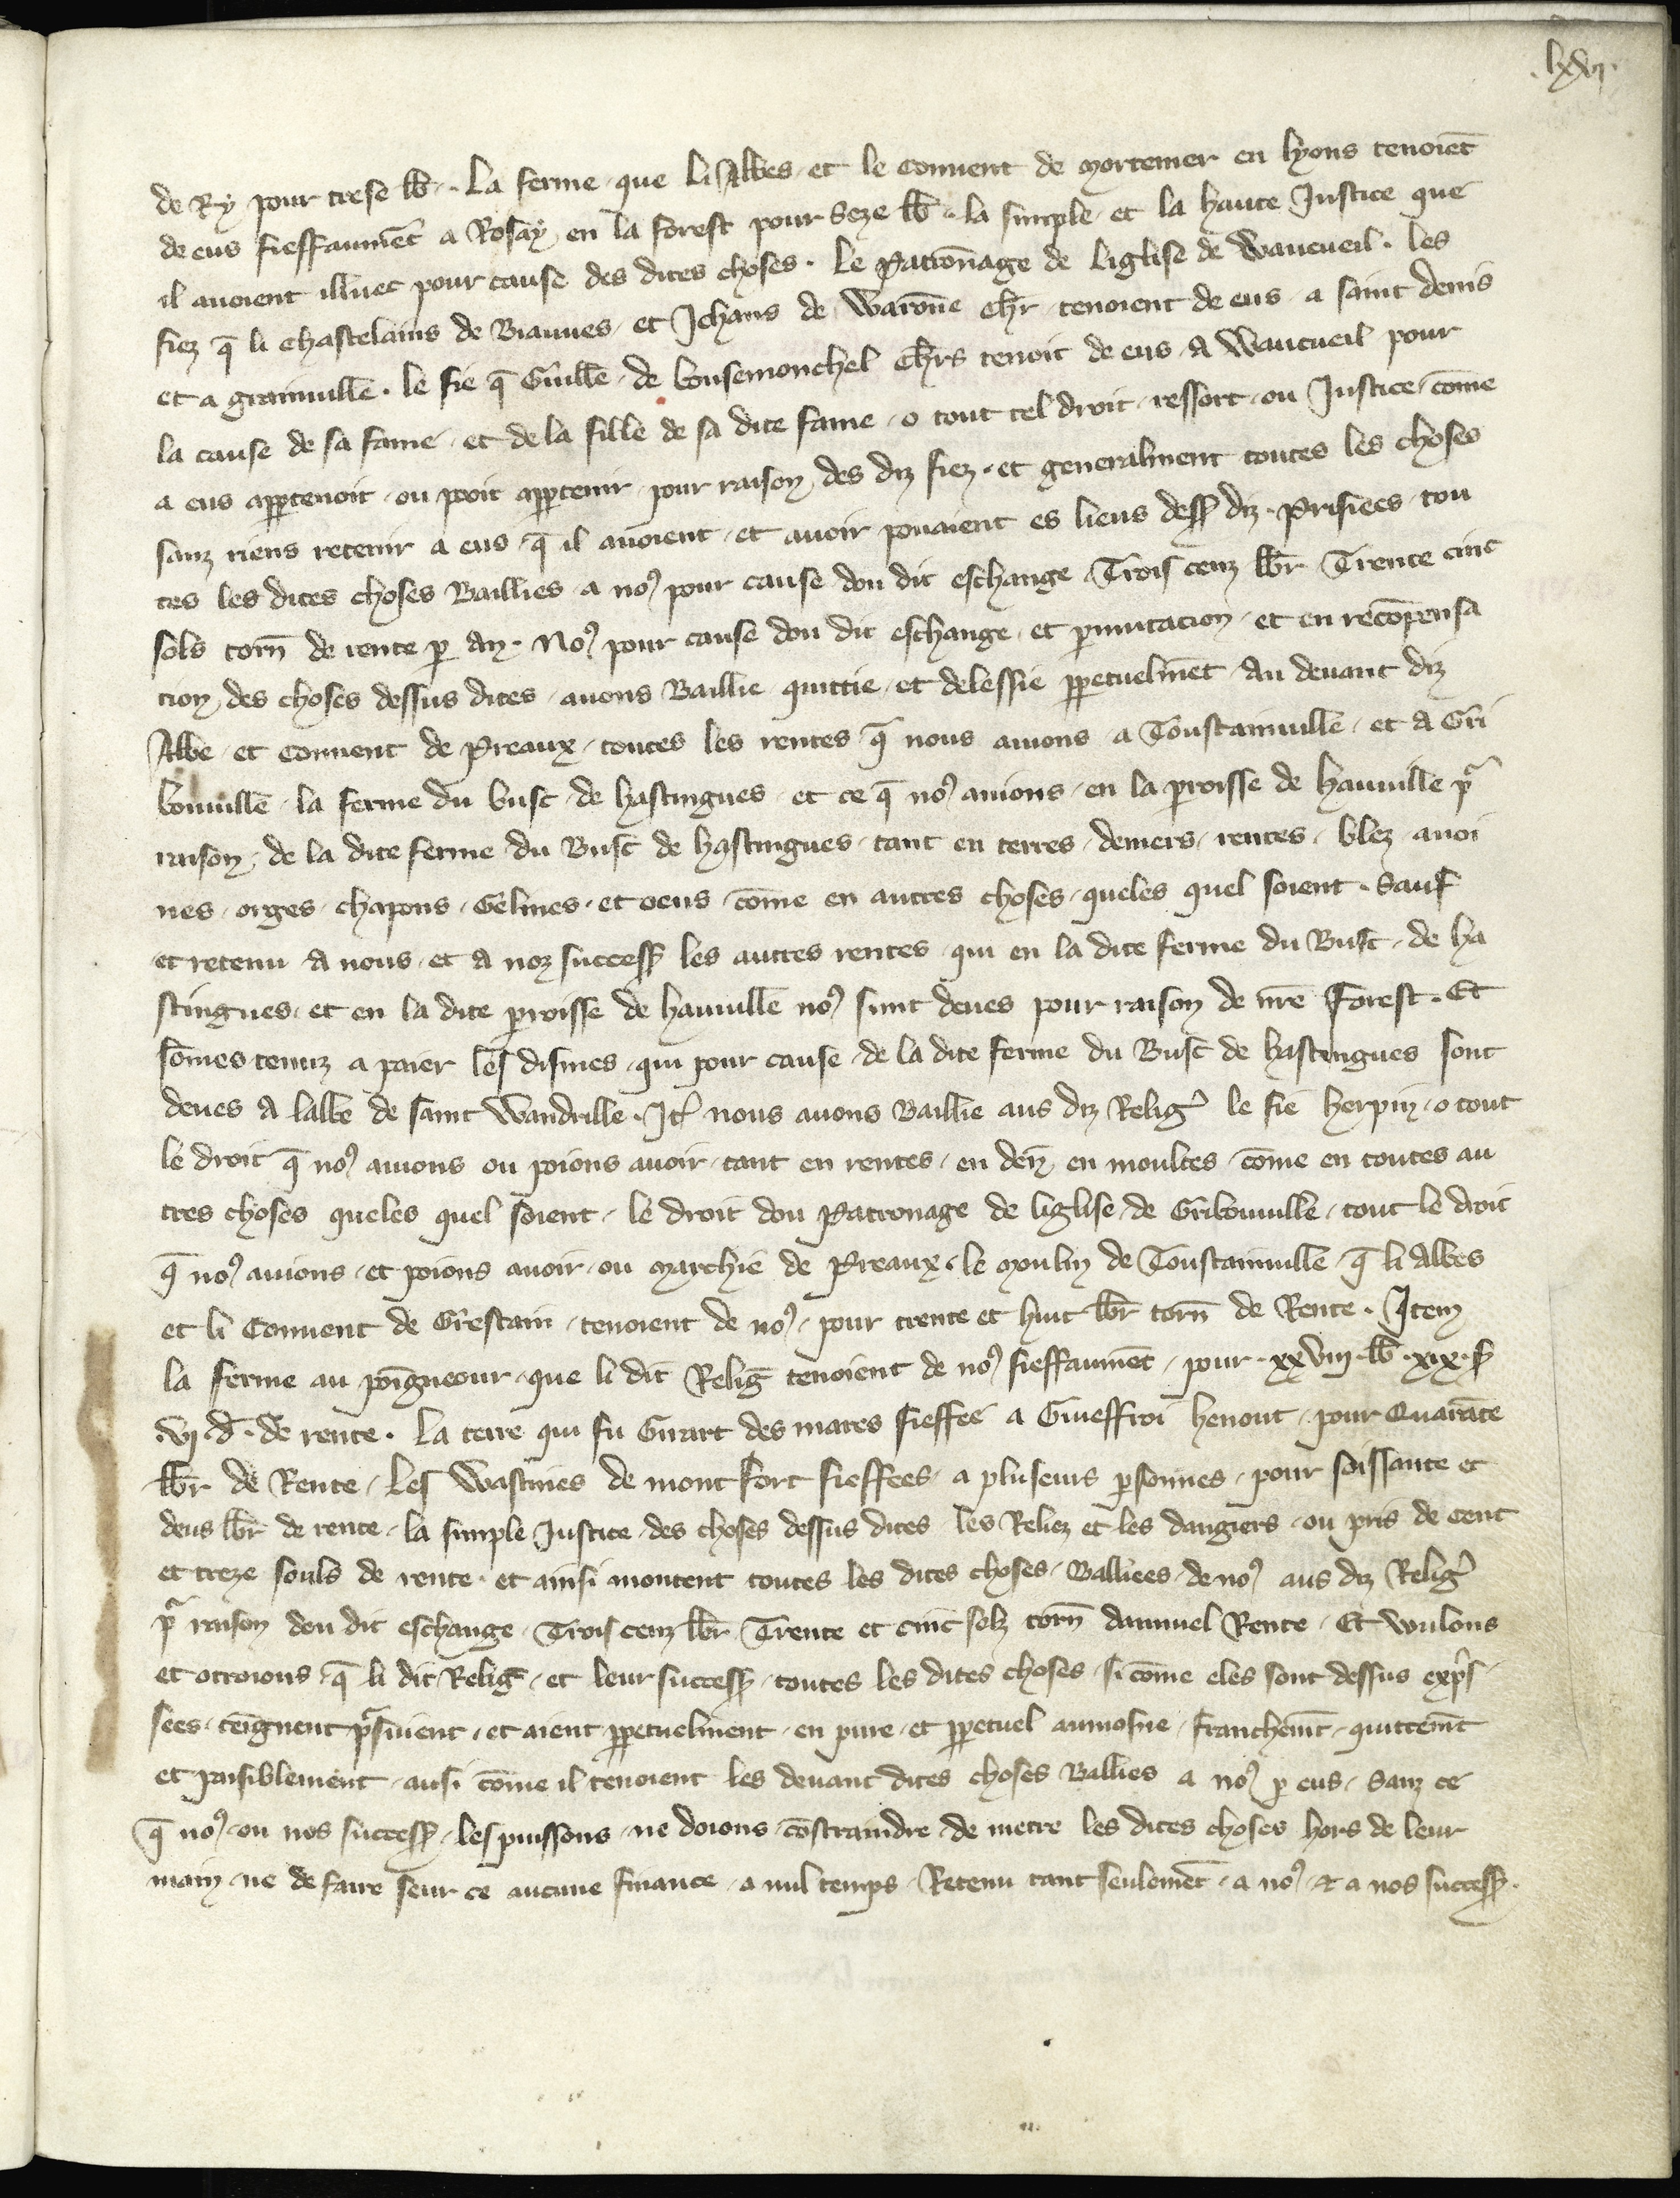 .lxvj.
de Ry pour trese lb̄. La ferme que li Abbes et le Conuent de Mortemer en Lyons tenoiēt
de eus fieffaumēt a Rosay en la forest pour seze lb̄. la simple et la haute Justice que
il auoient illuec pour cause des dites choses. Le Patronnage de liglise de Waucueil. les
fiez q̄ li Chastelains de Biauues et Jehans de Waronne chr̄ tenoient de eus a saint denis
et a grainuille. le fie q̄ Guille de bousemonchel chrs̄ tenoit de eus a Waucueil pour
la cause de sa fame et de la fille de sa dite fame o tout tel droit ressort ou Justice cōme
a eus appartenoit ou pooit appartenir pour raison des diz fiez et generalment toutes les choses
sanz riens retenir a eus q̄ il auoient et auoir pouaient es lieus dess' diz. Prisiees tou
tes les dites choses Baillies a noꝰ pour cause dou dit eschange Trois cenz lb̄r Trente cinc
sols torn̄ de rente p an. Noꝰ pour cause dou dit eschange et pmutacion et en recōpensa
cion des choses dessus dites auons Baillie quittie et delessie ppetuelmēt au deuant diz
Abbe et Conuent de Preaux toutes les rentes q̄ nous auions a Toustainuille et a Gri
bouuille la ferme du busc de hastingues et ce q̄ noꝰ auions en la proisse de hauuille pr
raison de la dite ferme du Busc de hastingues tant en terres deniers rentes blez auoi
nes orges chapons Gelines et oeus cōme en autres choses queles quel soient. Sauf
et retenu a nous et a noz success' les autres rentes qui en la dite ferme du Busc de ha
stingues et en la dite proisse de hauuille noꝰ sunt deues pour raison de nr̄e Forest. Et
sōmes tenuz a paier les dismes qui pour cause de la dite ferme du Busc de hastingues sont
deues a labbe de saint Wandrille. It' nous auons Baillie aus diz Relig' le fie herpin o tout
le droit q̄ noꝰ auions ou poions auoir tant en rentes en den̄ en moultes cōme en toutes au
tres choses queles quel soient le droit dou Patronage de liglise de Gribouuille tout le droit
q̄ noꝰ auions et poions auoir ou Marchie de Preaux le Moulin de Toustainuille q̄ li Abbes
et li Conuent de Grestain tenoient de noꝰ pour trente et huit lb̄r torn̄ de Rente. Item
la ferme au poigneour que li dit Reliḡ tenoient de noꝰ fieffaumēt pour .xxviij. lb̄ .xix. s'
.vj. d̄. de rente. La terre qui fu Girart des mares fieffee a Guieffroi henout pour Quarāte
lb̄r de Rente. Les Wastines de mont fort fieffees a pluseurs psonnes pour soissante et
deus lb̄r de rente la simple Justice des choses dessus dites les Reliez et les dangiers ou pris de cent
et treze souls de rente et ainsi montent toutes les dites choses Balliees de noꝰ aus diz Relig'
pr raison dou dit eschange Trois cenz lb̄r Trente et cinc solz torn̄ dannuel Rente. Et voulons
et otroions q̄ li dit Reliḡ et leur success' toutes les dites choses si cōme eles sont dessus exp̄s
sees teignent prsiuent et aient ppetuelment en pure et ppetuel aumosne franchemt̄ quittemt̄
et paisiblement ausi cōme il tenoient les deuant dites choses Ballies a noꝰ p eus sanz ce
q̄ noꝰ ou nos success' les puissons ne doions cōstraindre de metre les dites choses hors de leur
main ne de faire seur ce aucune finance a nul temps Retenu tant seulemēt a noꝰ et a nos success'.